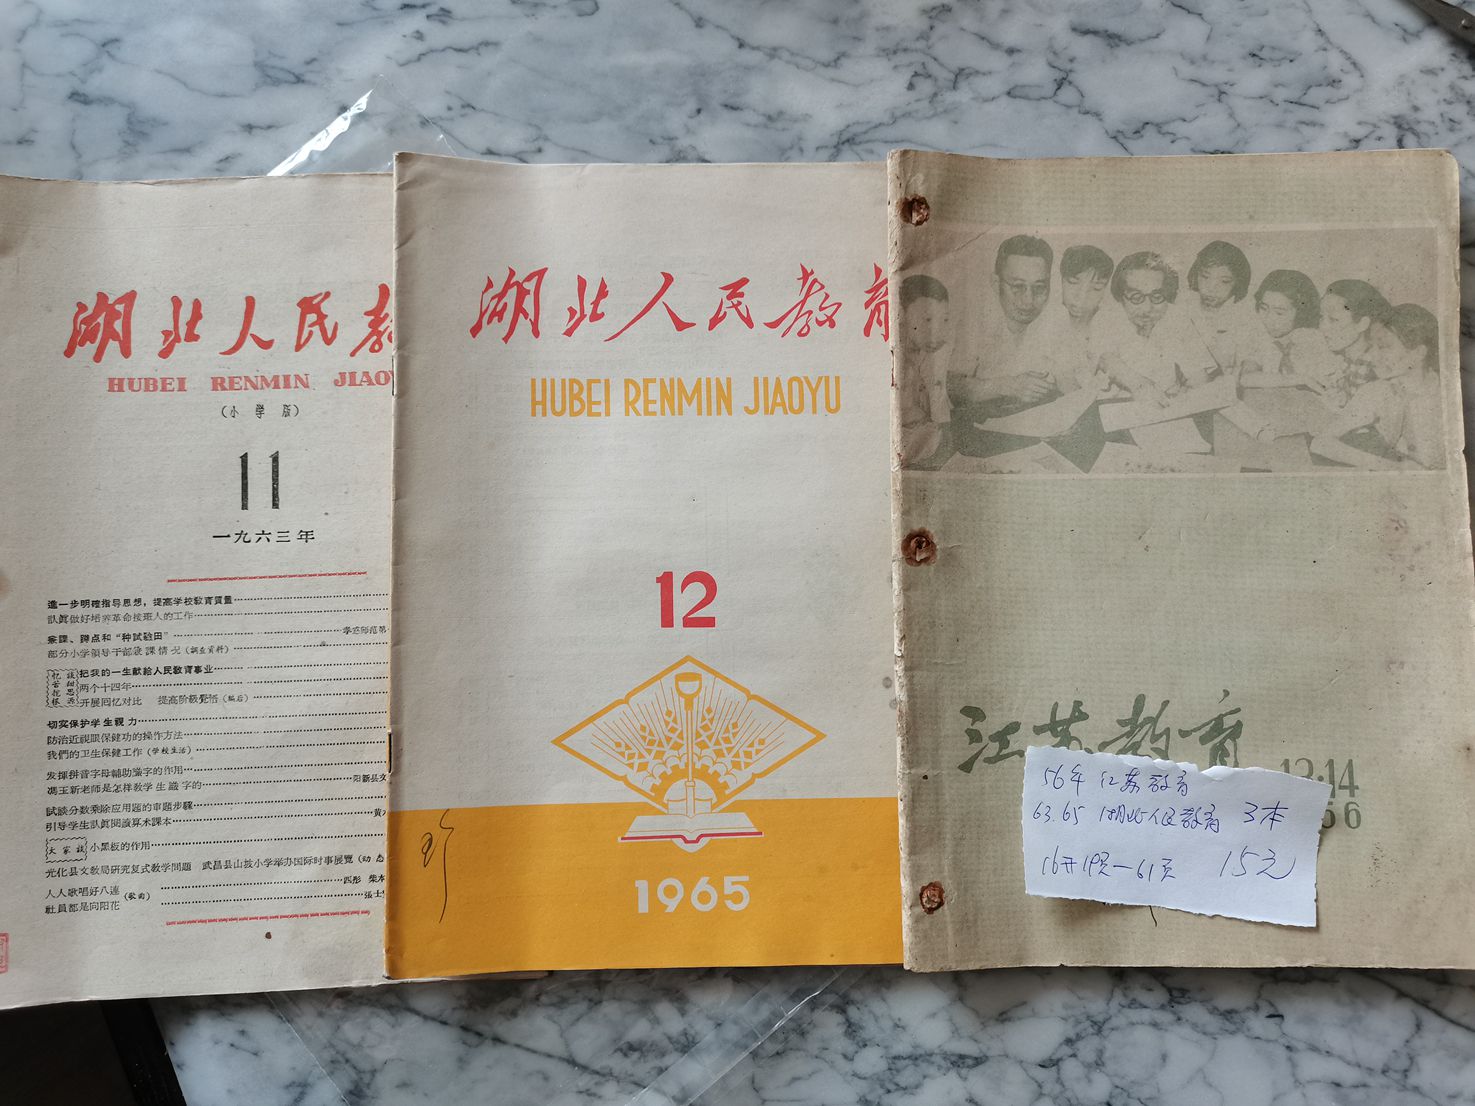 湖北人民教
HUBEI RENMIN JIAO
(小学版)
11
一九六三年
進一步明確指导思想，提高学校教育質量
認眞做好培养革命接班人的工作
亲課、蹲点和“种試验田”
部分小学領导干部兼課情况(調查資料)
把我的一生献給人民教育事业
两个十四年
开展回忆对比 提高阶級覺悟(編后)
切实保护学生視力
防治近視眼保健功的操作方法
我們的卫生保健工作(学校生活)
发揮拼音字母輔助識字的作用
馮玉新老师是怎样教学生識字的
阳新县文
試談分数乘除应用題的审題步驟
引导学生認眞閱讀算术課本
黄
大家談 小黑板的作用
光化县文教局研究复式教学問題 武昌县山坡小学举办国际时事展覽(动态
人人歌唱好八連
社員都是向阳花
(歌曲)
四彤 柴本
湖北人民教育
HUBEI RENMIN JIAOYU
12
1965
江苏教育
13·14
56
56年 江苏教育
63.65 湖北人民教育 3本
16开19页—61页 15元